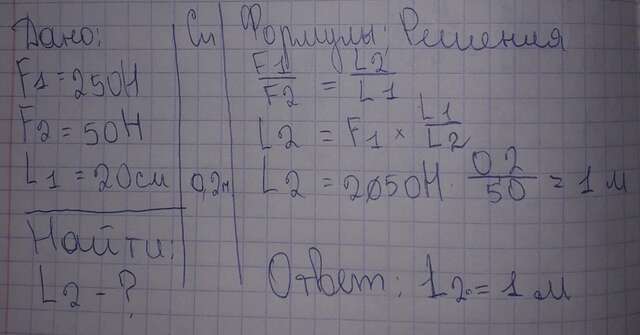 Дано:
F1 = 250Н
F2 = 50Н
L1 = 20см
Найти:
L2 - ?
Си
0,2м
Формулы: Решения
F1/F2 = L2/L1
L2 = F1 × L1/L2
L2 = 2050Н · 02/50 = 1 м
Ответ: L2 = 1 м